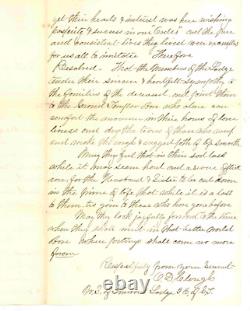 yet their hearts & interest was ever wishing
prosperity & success in our Circle and the pure
and consistent lives they lived were examples
for us all to imitate Therefore
Resolved That the Members of this Lodge
tender their sincere & heartfelt sympathy to
the families of the deceased and point them
to the Second Temple One who alone can
comfort the mourner in their hours of lone
liness and dry the tears of those who weep
and make the rough & rugged path of life smooth
May they feel that in their sad loss
while it may seem sad and a sore afflict
ion for the Husband & Sister to be cut down
in the prime of life that while it is a loss
to them tis gain to those who have gone before
May they look joyfully forward to the time
when they shall meet in that better world
above where partings shall come no more
forever
Respectfully from your Servant